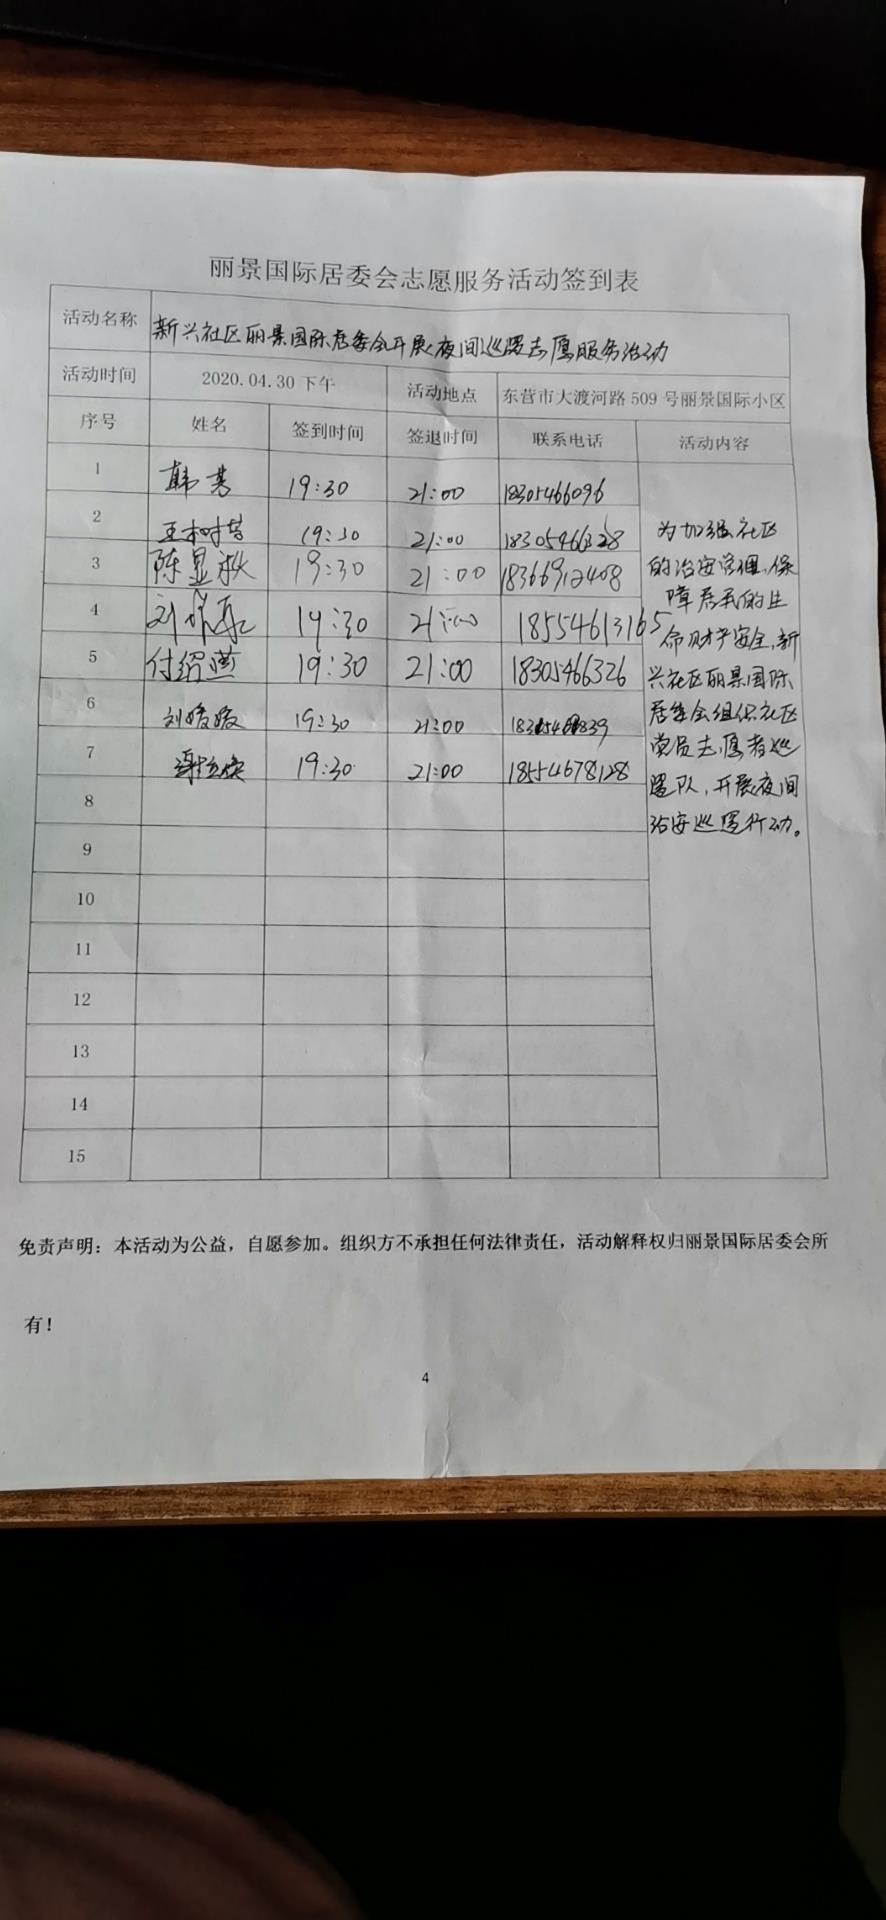 丽景国际居委会志愿服务活动签到表
活动名称 新兴社区丽景国际居委会开展夜间巡逻志愿服务活动
活动时间 2020.04.30 下午 活动地点 东营市大渡河路 509 号丽景国际小区
序号 姓名 签到时间 签退时间 联系电话 活动内容
1 韩 19:30 21:00 18305466096
2 19:30 21:00 18305466328
3 陈显秋 19:30 21:00 18366912408
4 刘 19:30 21:00 18554613165
5 付绍燕 19:30 21:00 18305466326
6 刘媛媛 19:30 21:00
7 19:30 21:00 18554678128
8
9
10
11
12
13
14
15
为加强社区
的治安管理,保
障居民的生
命财产安全,新
兴社区丽景国际
居委会组织社区
党员志愿者巡
逻队,开展夜间
治安巡逻行动。
免责声明：本活动为公益，自愿参加。组织方不承担任何法律责任，活动解释权归丽景国际居委会所
有！
4